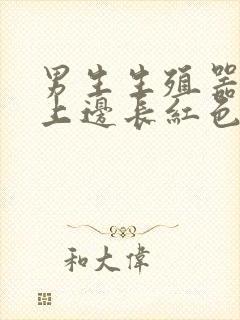 男生生殖器
上邊長紅色
和大偉